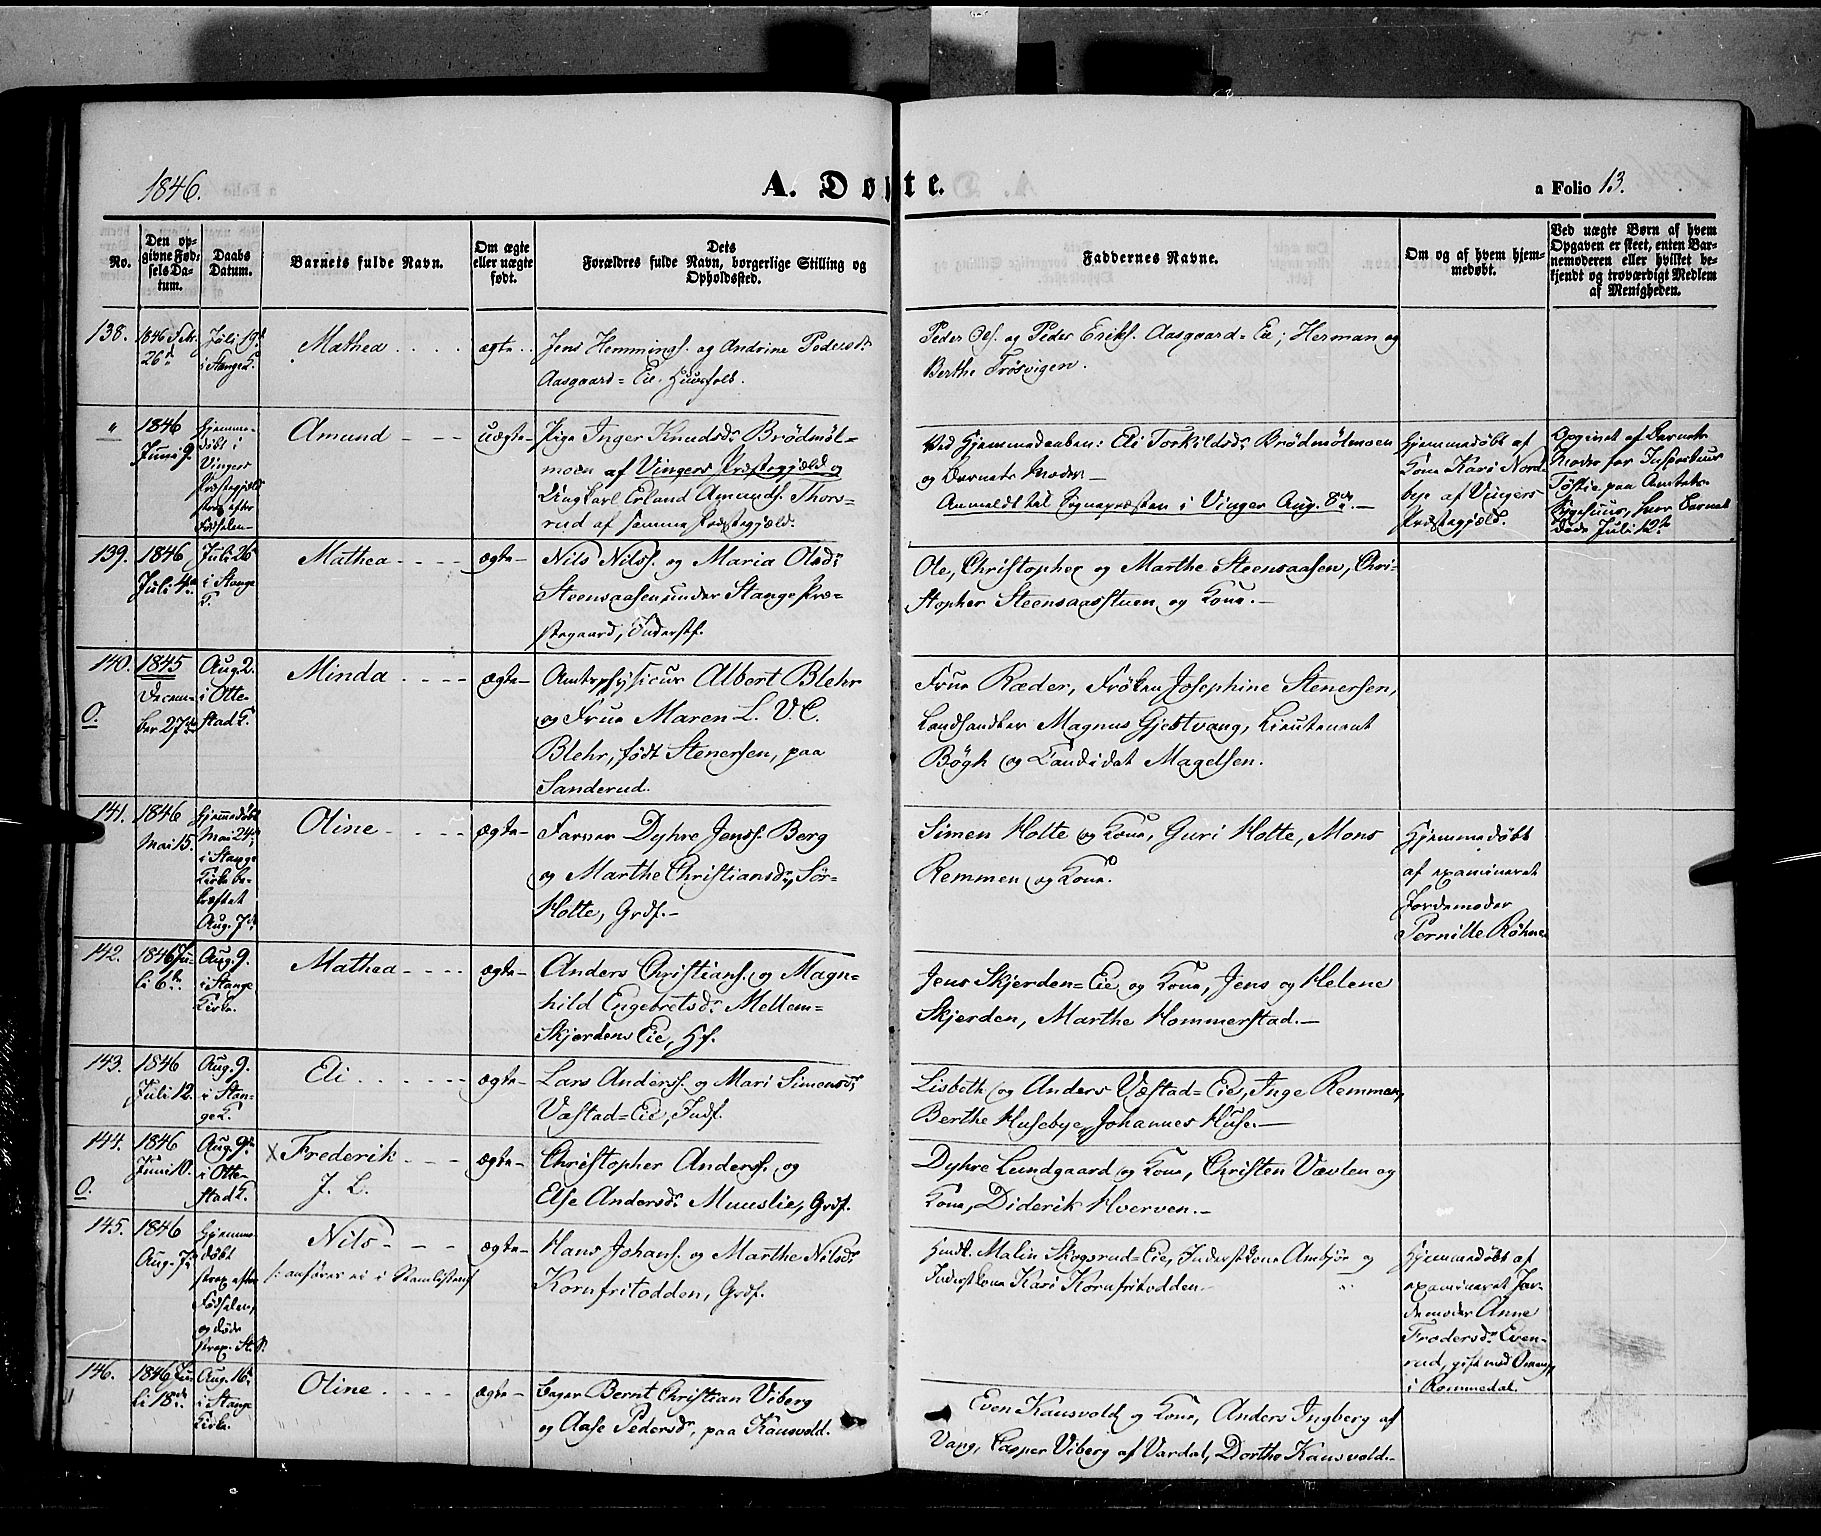 1846.
A. Døbte.
a Folio 13.
No.
Den op-
givne Fød-
sels Da-
tum.
Daabs
Datum.
Barnets fulde Navn.
Om ægte
eller uægte
født.
Dets
Forældres fulde Navn, borgerlige Stilling og
Opholdssted.
Faddernes Navne.
Om og af hvem hjem-
medøbt.
Ved uægte Børn af hvem
Opgaven er skeet, enten Bar-
nemoderen eller hvilket be-
kjendt og troværdigt Medlem
af Menigheden.
138.
26d
Juli 19d
i Stange K.
Mathea
ægte
Jens Hemmings. og Andrine Pedersdr
Aasgaard=Eie, Huusfolk.
Peder Ols. og Peder Eriks. Aasgaard=Eie; Herman og
Berthe Frøsvigen.
"
1846
Juni 9.
Hjemme-
døbt i
Vinger
Præstegjeld
strax efter
Fødselen
Amund
uægte
Pige Inger Knudsdr Brødmøl-
moen af Vingers Præstegjæld og
Ungkarl Erland Amunds. Thors-
rud af samme Præstegjæld.
Ved Hjemmedaaben: Eli Torkildsdr Brødmølmoen
og Barnets Moder
Anmeldt til Sognepræsten i Vinger Aug. 8de
Hjemmedøbt af
Kone Kari Nord-
bye af Vingers
Præstegjæld.
Opgivet af Barnets
Moder for Inspecteur
paa Amtets
Sygehuus, hvor Barnet
døde Juli 12te
139.
1846
Juli 4de
Juli 26
i Stange
K.
Mathea
ægte
Nils Nilss. og Maria Olsdr
Steensaasen under Stange Præ-
stegaard, Inderstf.
Ole, Christopher og Marthe Steensaasen, Chri-
stopher Steensaasstuen og Kone.
140.
O.
1845
Decem-
ber 27de
Aug 2.
i Otte-
stad K.
Minda
ægte
Amtsphysicus Albert Blehr
og Frue Maren L. V. C.
Blehr, født Stenersen, paa
Sanderud.
Frue Ræder, Frøken Josephine Stenersen,
Landhandler Magnus Gjestvang, Lieutenant
Bögh og Candidat Magelsen.
141.
1846
Mai 15.
Hjemmedøbt
Mai 24,
i Stange
Kirke be-
kræftet
Aug. 7de
Oline
ægte
Farver Dyhre Jenss. Berg
og Marthe Christiansdr Sør-
Holte, Grdf.
Simen Holte og Kone, Guri Holte, Mons
Remmen og Kone.
Hjemmedøbt
af examineret
Jordemoder
Pernille Røhne
142.
1846 Ju-
li 6te
Aug. 9.
i Stange
Kirke.
Mathea
ægte
Anders Christians. og Magn-
hild Engebretsdr Mellem-
Skjerdens Eie, Hf.
Jens Skjerden=Eie og Kone, Jens og Helene
Skjerden, Marthe Hommerstad.
143.
1846
Juli 12.
Aug. 9.
i Stan-
ge K.
Eli
ægte
Lars Anderss. og Mari Simensdr
Væstad=Eie, Indf.
Lisbeth og Anders Væstad=Eie, Inge Remmen,
Berthe Husebye, Johannes Huse.
144.
O.
1846
Juni 10.
Aug. 9de
i Otte-
stad K.
X Frederik
J. L.
ægte
Christopher Anderss. og
Else Andersdr Muuslie, Grdf.
Dyhre Lundgaard og Kone, Christen Vævlen og
Kone, Diderik Hverven.
145.
1846
Aug. 7de
Hjemme-
døbt
strax efter
Fødselen,
og døde
strax.
Nils
/: anføres ei i Stamlisten
ægte
Hans Johans. og Marthe Nilsdr
Kornfritodden, Grdf.
Malin Skogsrud=Eie, Inderstkone Ambjør og
Inderstkone Kari Kornfritodden
Hjemmedøbt af
examineret Jor-
demoder Anne
Fredersdr Even-
rud, gift med
i Rommedal.
146.
1846 Ju-
li 18de
Aug. 16de
i Stange
Kirke.
Oline
ægte
Bager Bernt Christian Viberg
og Aase Pedersdr, paa Kausvold.
Even Kausvold og Kone, Anders Ingberg af
Vang, Casper Viberg af Vardal, Dorthe Kausvold.